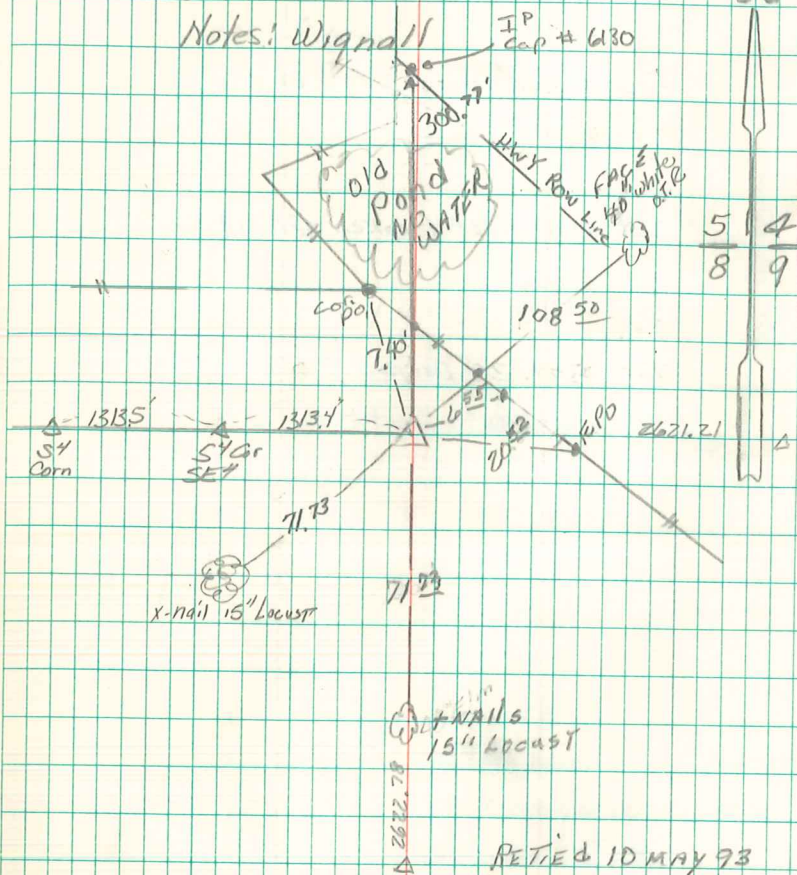 Notes: Wignall
IP
Cap # 6130
300.77'
HWY ROW Line
Old
Pond
NO
WATER
40" white
O.T.R
5 4
8 9
Cor
po.
108 50
7.40'
6 55
20.52
2621.21
1313.5'
1313.4'
S4
Corn
S4 Cor
SE4
71.73
x-nail 15" Locust
71 73
+NAIls
15" Locust
2622.78
RETIEd 10 MAY 93